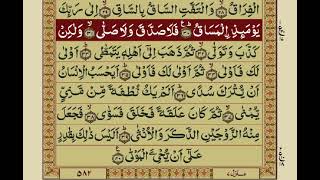 الْفِرَاقُ ﴿٢٨﴾ وَالْتَفَّتِ السَّاقُ بِالسَّاقِ ﴿٢٩﴾ اِلٰى رَبِّكَ
يَوْمَئِذِ ۨالْمَسَاقُ ﴿٣٠﴾ فَلَا صَدَّقَ وَلَا صَلّٰى ﴿٣١﴾ وَلٰكِنْ
كَذَّبَ وَتَوَلّٰى ﴿٣٢﴾ ثُمَّ ذَهَبَ اِلٰٓى اَهْلِهٖ يَتَمَطّٰى ﴿٣٣﴾ اَوْلٰى
لَكَ فَاَوْلٰى ﴿٣٤﴾ ثُمَّ اَوْلٰى لَكَ فَاَوْلٰى ﴿٣٥﴾ اَيَحْسَبُ الْاِنْسَانُ
اَنْ يُّتْرَكَ سُدًى ﴿٣٦﴾ اَلَمْ يَكُ نُطْفَةً مِّنْ مَّنِيٍّ
يُّمْنٰى ﴿٣٧﴾ ثُمَّ كَانَ عَلَقَةً فَخَلَقَ فَسَوّٰى ﴿٣٨﴾ فَجَعَلَ
مِنْهُ الزَّوْجَيْنِ الذَّكَرَ وَالْاُنْثٰى ﴿٣٩﴾ اَلَيْسَ ذٰلِكَ بِقٰدِرٍ
عَلٰٓى اَنْ يُّحْيِۦَ الْمَوْتٰى ﴿٤٠﴾
٥٨٢